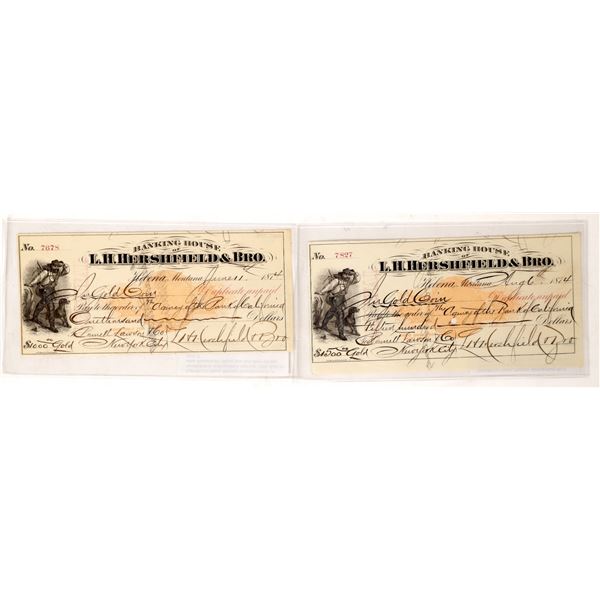 BANKING HOUSE
OF
No. 7678
L.H. HERSHFIELD & BRO.
Helena, Montana June 11th 1874
In Gold Coin
Duplicate unpaid
Pay to the order of The Agency of the Bank of California
One thousand Dollars
Donnell Lawson & Co
New York City
$1000 00 Gold
L H Hershfield & Bro
BANKING HOUSE
OF
No. 7827
L.H. HERSHFIELD & BRO.
Helena, Montana Aug 6th 1874
In Gold Coin
Duplicate unpaid
Pay to the order of The Agency of the Bank of California
Fifteen hundred Dollars
To Donnell Lawson & Co
New York City
$1500 00 Gold
L H Hershfield & Bro